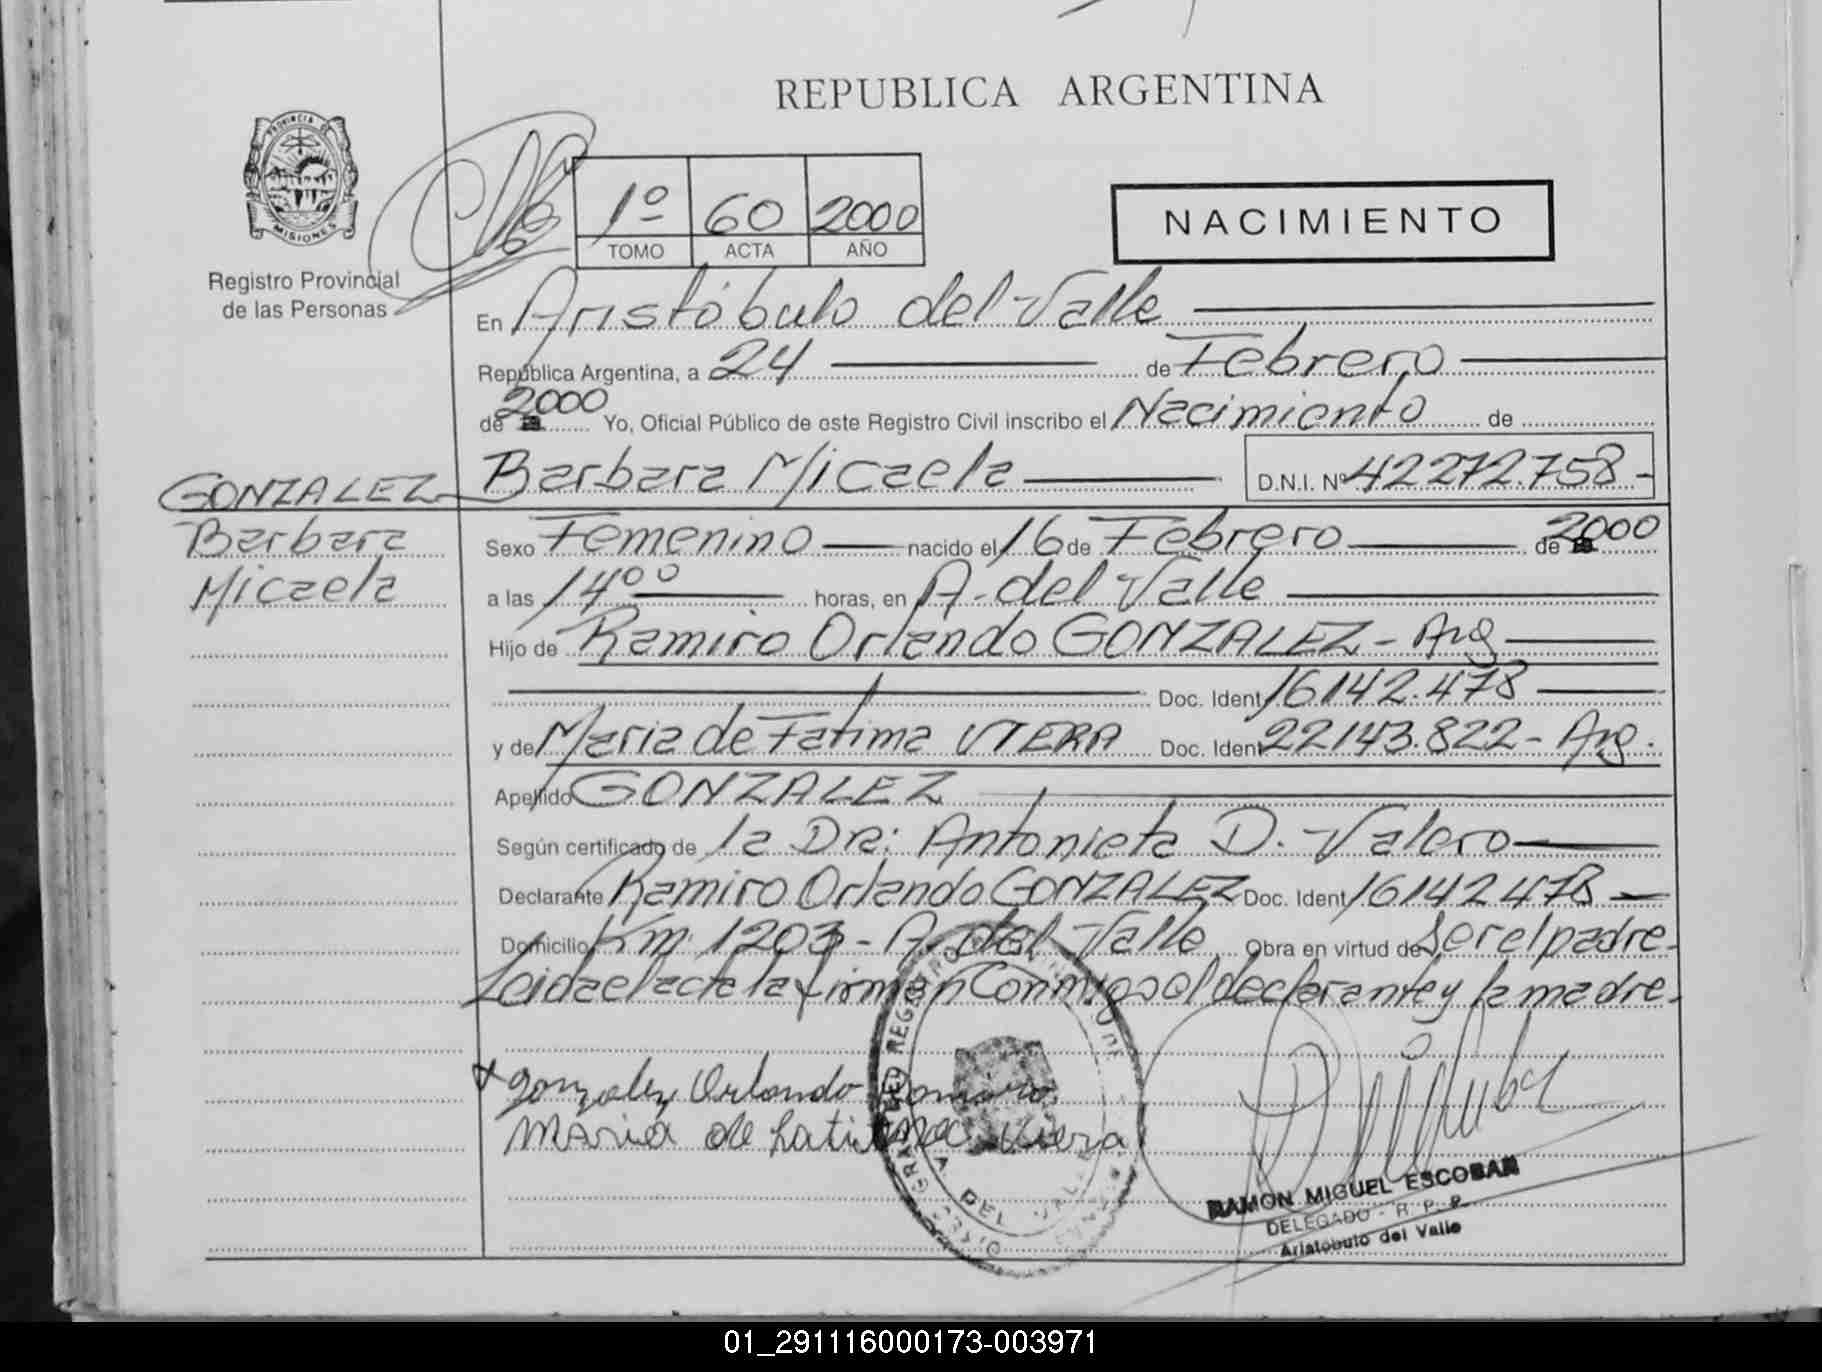 REPUBLICA ARGENTINA
PROVINCIA DE
MISIONES
Registro Provincial
de las Personas
1º 60 2000
TOMO ACTA AÑO
NACIMIENTO
En Aristóbulo del Valle
República Argentina, a 24 de Febrero
de 2000 Yo, Oficial Público de este Registro Civil inscribo el Nacimiento de
Barbara Micaela D.N.I. Nº 42272.758-
GONZALEZ
Barbara
Micaela
Sexo Femenino nacido el 16 de Febrero de 2000
a las 14⁰⁰ horas, en A. del Valle
Hijo de Ramiro Orlando GONZALEZ - Arg
Doc. Ident 16142.478
y de Maria de Fatima VIERA Doc. Ident 22143.822- Arg.
Apellido GONZALEZ
Según certificado de la Dra: Antonieta D. Valero
Declarante Ramiro Orlando GONZALEZ Doc. Ident 16142478
Domicilio Km 1203 - A. del Valle Obra en virtud de Ser el padre.
Leida el acta la firman Conmigo el declarante y la madre.
Gonzalez Orlando Ramiro
Maria de Fatima Viera
A. DEL VALLE
RAMON MIGUEL ESCOBAR
DELEGADO - R. P. P.
Aristobulo del Valle
01_291116000173-003971